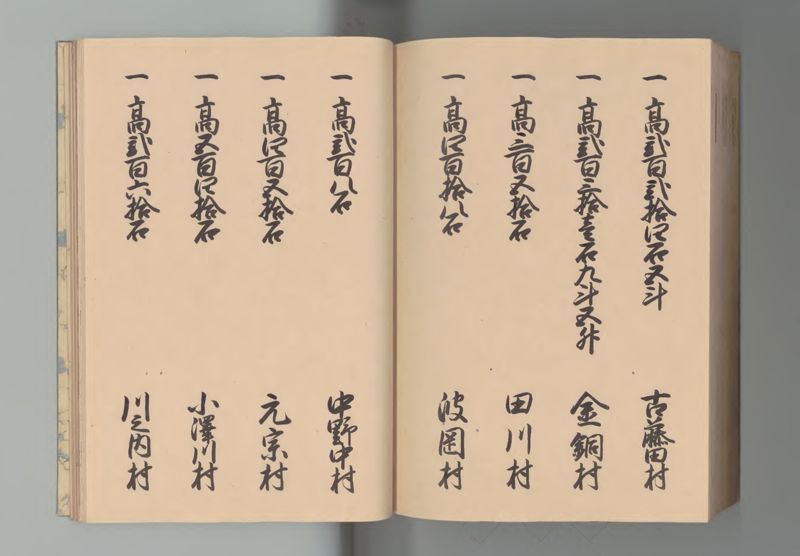 一高弐百弐拾四石五斗 古藤田村
一高弐百三拾壱石九斗五升 金銅村
一高三百五拾石 田川村
一高四百拾八石 波岡村
一高弐百八石 中野中村
一高四百五拾石 元宗村
一高五百四拾石 小澤川村
一高弐百六拾石 川之内村